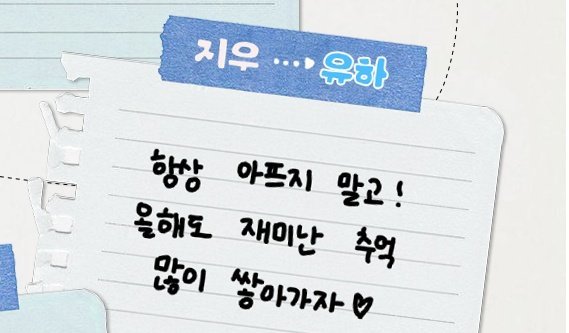 지우 ····♥ 유하
항상 아프지 말고!
올해도 재미난 추억
많이 쌓아가자♡